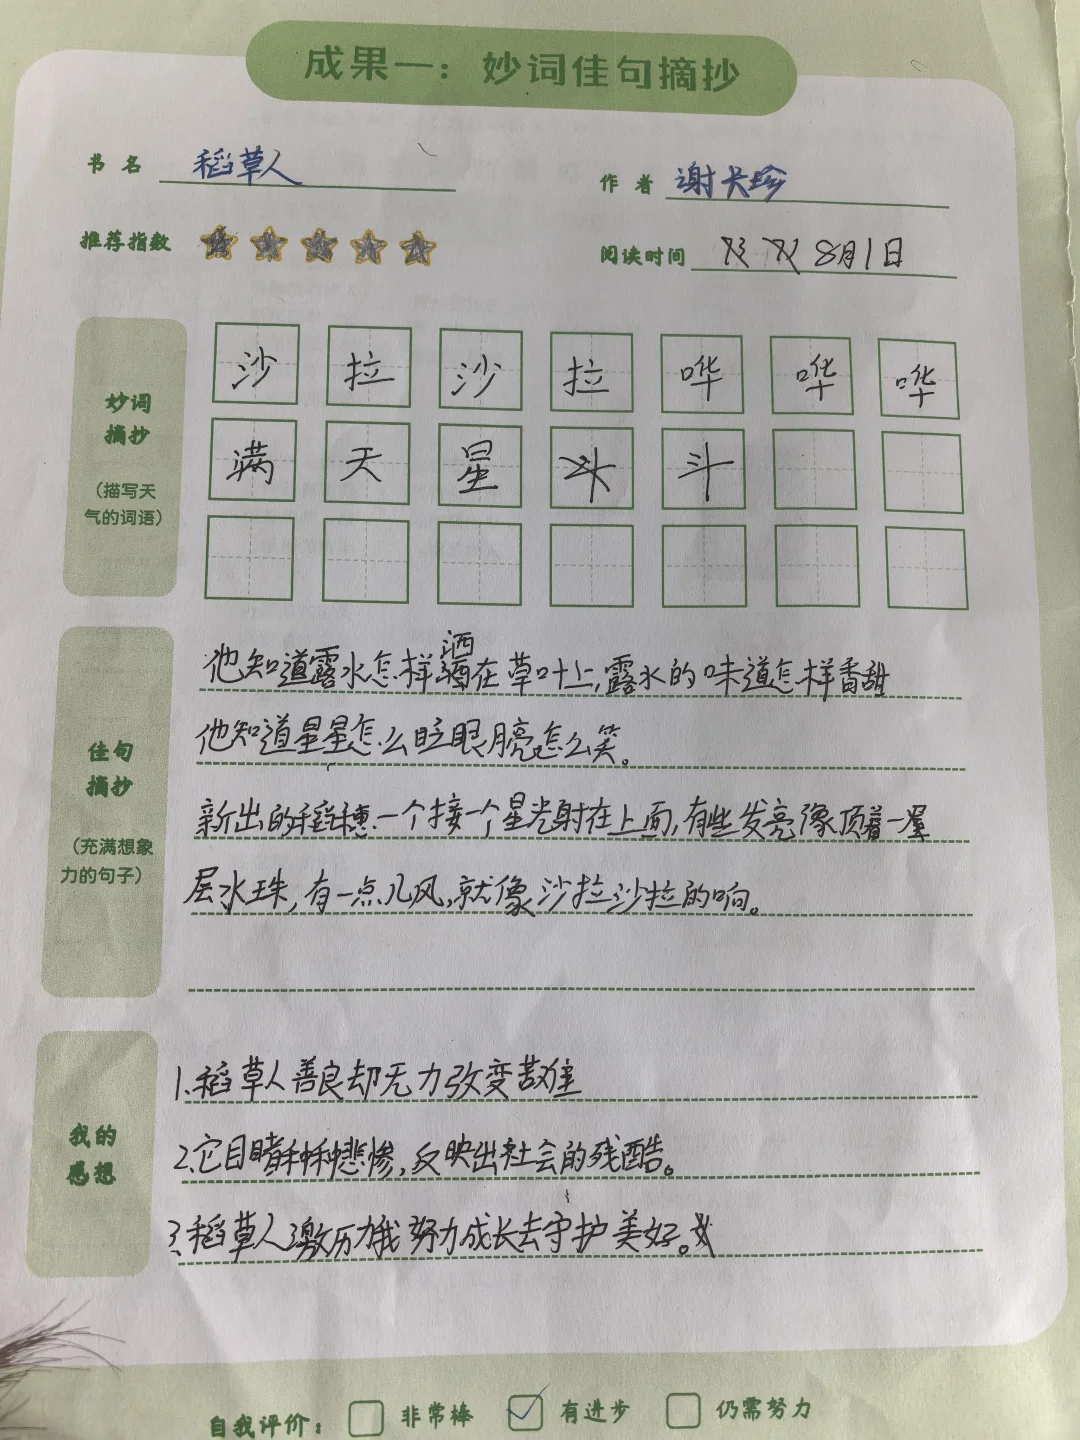 成果一：妙词佳句摘抄
书名 稻草人
作者 谢长珍
推荐指数
阅读时间 8月1日
妙词摘抄
（描写天气的词语）
沙拉沙拉哗哗哗
满天星斗
佳句摘抄
（充满想象力的句子）
洒
他知道露水怎样在草叶上,露水的味道怎样香甜
他知道星星怎么眨眼月亮怎么笑。
新出的稻穗一个接一个星光射在上面,有些发亮像顶着一
层水珠,有一点儿风,就像沙拉沙拉的响。
我的感想
1.稻草人善良却无力改变苦难
2.它目睹种种悲惨,反映出社会的残酷。
3.稻草人激历我努力成长去守护美好。
自我评价： 非常棒 有进步 仍需努力